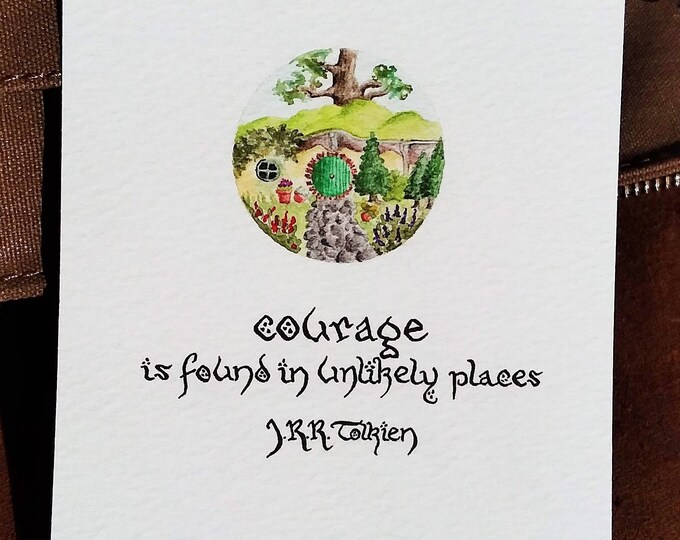 courage
is found in unlikely places
J.R.R. Tolkien